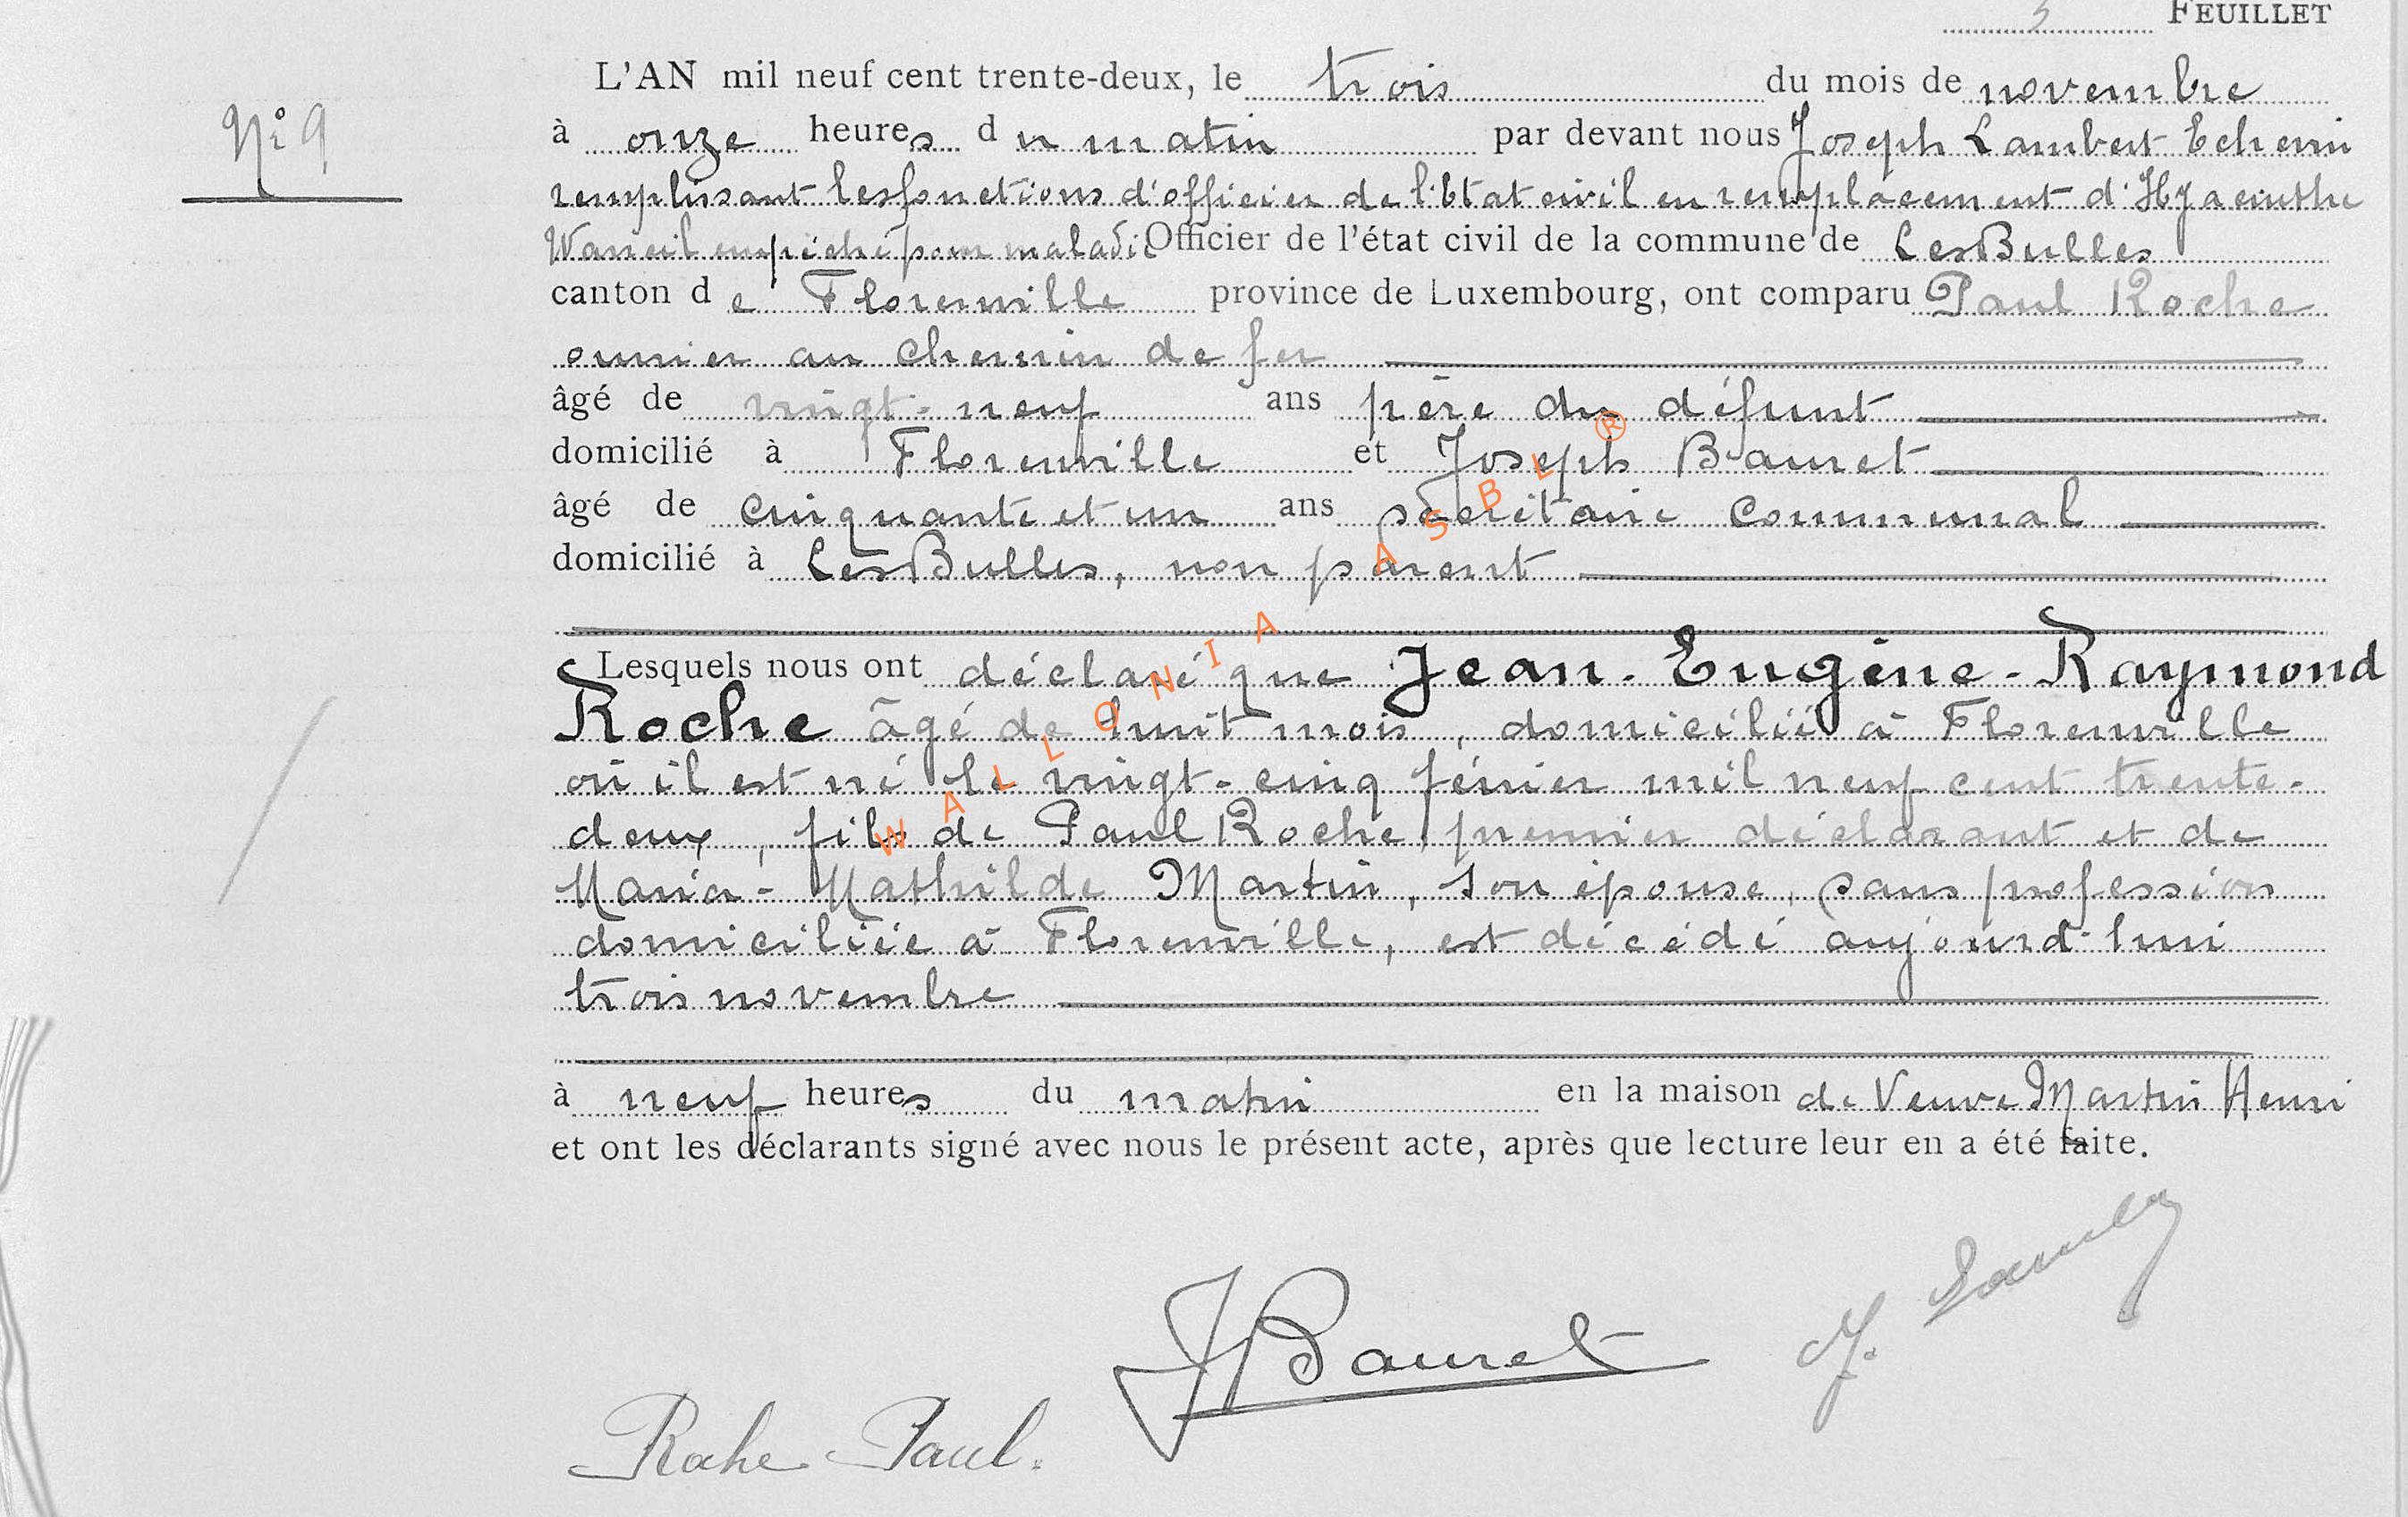 5 FEUILLET
N° 9
L'AN mil neuf cent trente-deux, le trois du mois de novembre
à onze heures du matin par devant nous Joseph Lambert Echevin
remplissant les fonctions d'officier de l'Etat civil en remplacement d'Hyacinthe
Wancil empêché pour maladie Officier de l'état civil de la commune de Les Bulles
canton de Florenville province de Luxembourg, ont comparu Paul Roche
ouvrier au chemin de fer
âgé de vingt-neuf ans père du défunt
domicilié à Florenville et Joseph Bauret
âgé de cinquante et un ans secrétaire communal
domicilié à Les Bulles, non parent
Lesquels nous ont déclaré que Jean-Eugène-Raymond
Roche âgé de huit mois, domicilié à Florenville
où il est né le vingt-cinq février mil neuf cent trente-
deux, fils de Paul Roche premier déclarant et de
Maria-Mathilde Martin, son épouse, sans profession
domiciliée à Florenville, est décédé aujourd'hui
trois novembre
à neuf heures du matin en la maison de Veuve Martin Henri
et ont les déclarants signé avec nous le présent acte, après que lecture leur en a été faite.
J. Lambert
J Bauret
Roche Paul.
WALLONIA ASBL ®